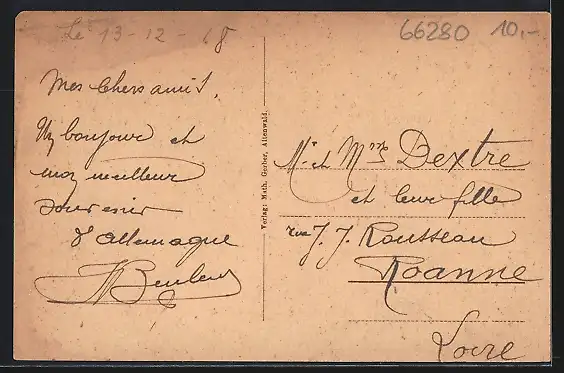 Le 13-12-18
66280 10,-
Mes chers amis,
Un bonjour et
mon meilleur
souvenir
d'allemagne
Verlag: Math. Gerber, Altenwald.
Mr et Mme Dextre
et leur fille
rue J. J. Rousseau
Roanne
Loire